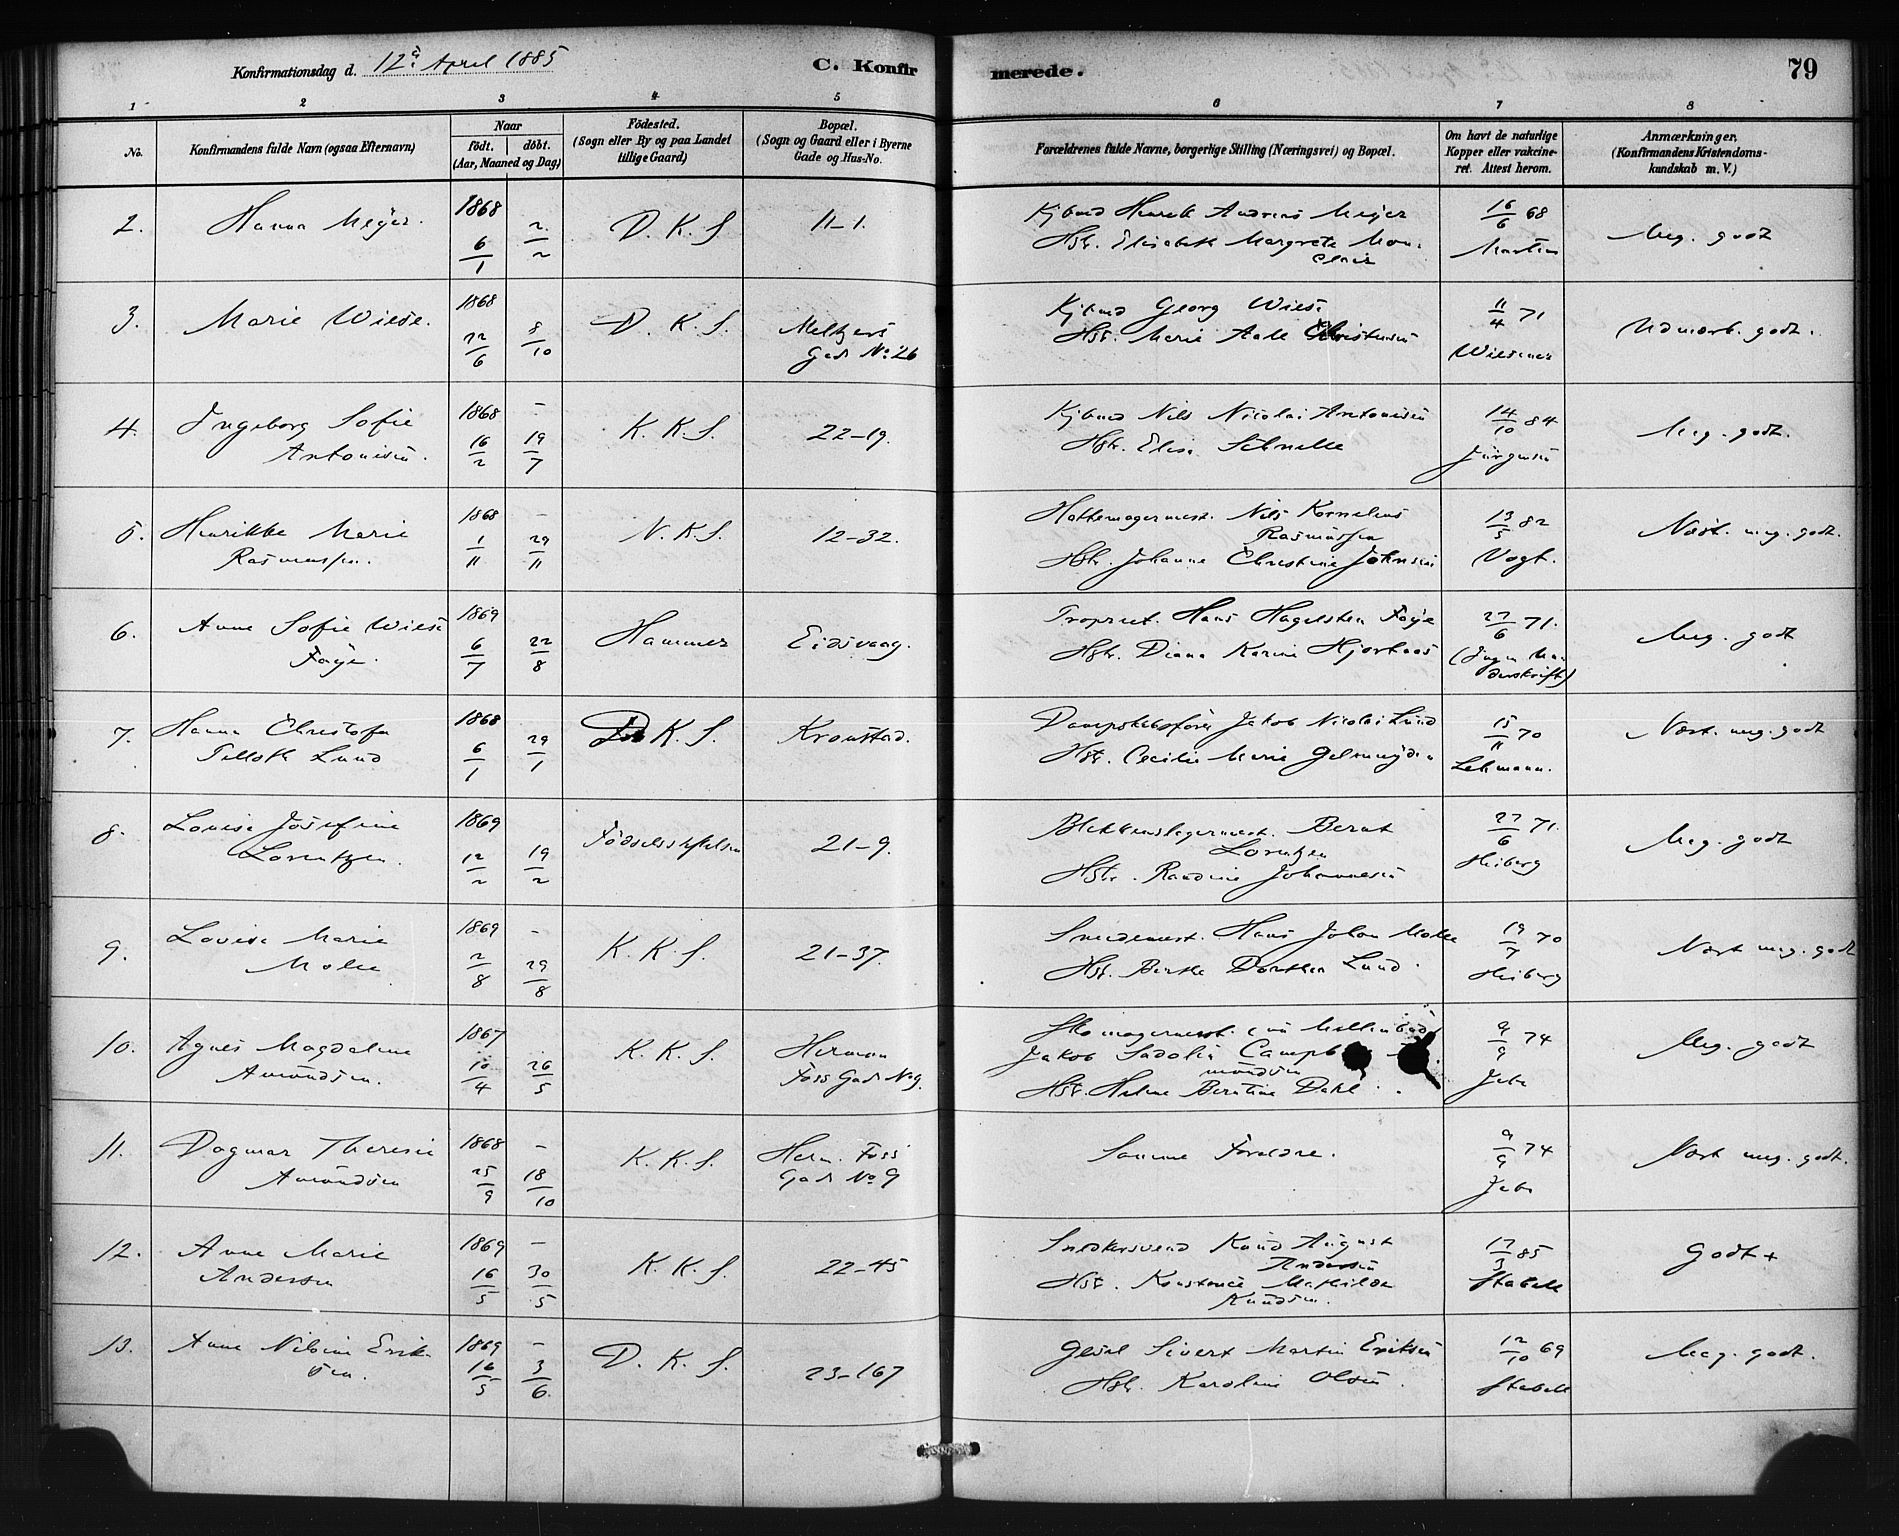 Konfirmationsdag d. 12te April 1885
C. Konfirmerede.
79
1 2 3 4 5 6 7 8
No.
Konfirmandens fulde Navn (ogsaa Efternavn)
Naar
födt. döbt.
(Aar, Maaned og Dag)
Födested.
(Sogn eller By og paa Landet
tillige Gaard)
Bopæl.
(Sogn og Gaard eller i Byerne
Gade og Hus-No.
Forældrenes fulde Navne, borgerlige Stilling (Næringsvei) og Bopæl.
Om havt de naturlige
Kopper eller vakcine-
ret. Attest herom.
Anmærkninger.
(Konfirmandens Kristendoms-
kundskab m. V.)
2. Hanna Meyer. 1868 6/1 2/2 D. K. S. 11-1.
Kjbmd Henrik Andreas Meyer
Hstr. Elisabeth Margrete Mon-
clair
16/6 68
Martens
Meg. godt
3. Marie Wiese. 1868 22/6 8/10 D. K. S. Meltzers
Gade No 26
Kjbmd Georg Wiese
Hstr. Marie Aall Christensen
11/4 71
Wiesener
Udmærk. godt.
4. Ingeborg Sofie
Antonisen. 1868 16/2 - 19/7 K. K. S. 22-19.
Kjbmd Nils Nicolai Antonisen
Hstr. Elise Schnelle
14/10 84
Jürgensen
Meg. godt.
5. Henrikke Marie
Rasmussen. 1868 1/11 - 29/11 N. K. S. 12-32.
Hattemagermest. Nils Kornelius
Rasmussen
Hstr. Johanne Christine Johnsen
13/5 82
Vogt.
Næst. meg. godt.
6. Anna Sofie Wiese
Faye. 1869 6/7 22/8 Hammer Eidsvaag.
Propriet. Hans Hagelsten Faye
Hstr. Diana Karine Hjorthaas
27/6 71.
(Ingen Un-
derskrift)
Meg. godt
7. Hanna Christofa
Lund 1868 6/1 29/1 K. S. Kronstad.
Dampskibsförer Jakob Nicolai Lund
Hstr. Cecilie Marie Gelmuyden
15/11 70
Lehmann.
Næst. meg. godt
8. Louise Josefine
Lorentzen. 1869 12/2 19/2 Födselsstiftelsen 21-9.
Blikkenslagermest. Bernt
Lorentzen
Hstr. Randine Johannesen
27/6 71.
Heiberg
Meg. godt
9. Lovise Marie
Molle 1869 2/8 - 29/8 K. K. S. 21-37.
Smedemest. Hans Johan Molle
Hst. Berthe Dorthea Lund.
19/7 70
Heiberg
Næst meg. godt
10. Agnes Magdalene
Amundsen. 1867 10/4 26/5 K. K. S. Herman
Foss Gade No 9.
Skomagermest.
Jakob Sadolin
mundsen
Hstr. Helene Berntine Dahl.
9/9 74
Jebe
Meg. godt
11. Dagmar Theresie
Amundsen 1868 25/9 - 18/10 K. K. S. Herm. Foss
Gade No 9
Samme Forældre.
9/9 74
Jebe
Næst meg. godt.
12. Anna Marie
Andersen 1869 16/5 - 30/5 K. K. S. 22-45
Snedkersvend Knud August
Andersen
Hstr. Konstance Mathilde
Knudsen.
17/3 85
Stabell
Godt +
13. Anna Nilsine Erik-
sen. 1869 16/5 - 3/6. D. K. S. 23-167
Gesel Sivert Martin Eriksen
Hstr. Karoline Olsen.
12/10 69
Stabell
Meg. godt.